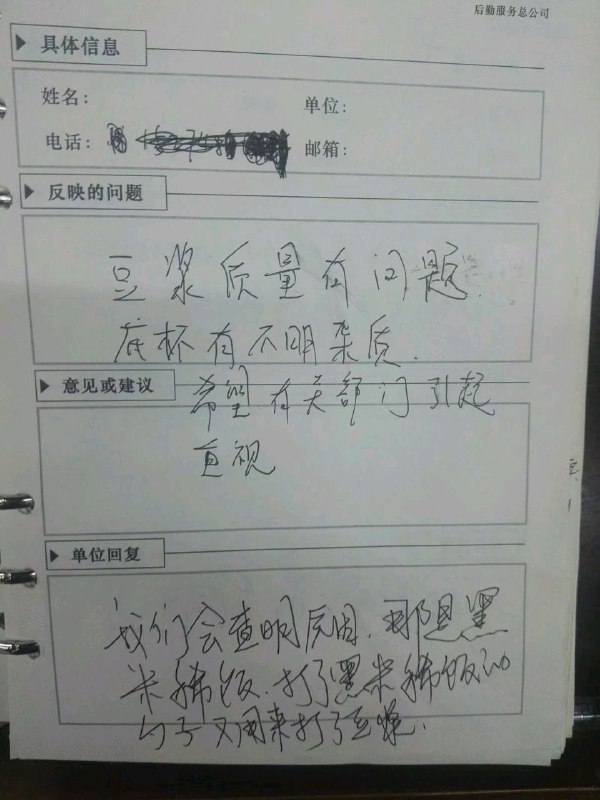 后勤服务总公司
▶ 具体信息
姓名： 单位：
电话： 邮箱：
▶ 反映的问题
豆浆质量有问题.
底杯有不明杂质.
▶ 意见或建议
希望有关部门引起
重视
▶ 单位回复
我们会查明原因.那是黑
米稀饭.打了黑米稀饭的
勺子又用来打了豆浆.